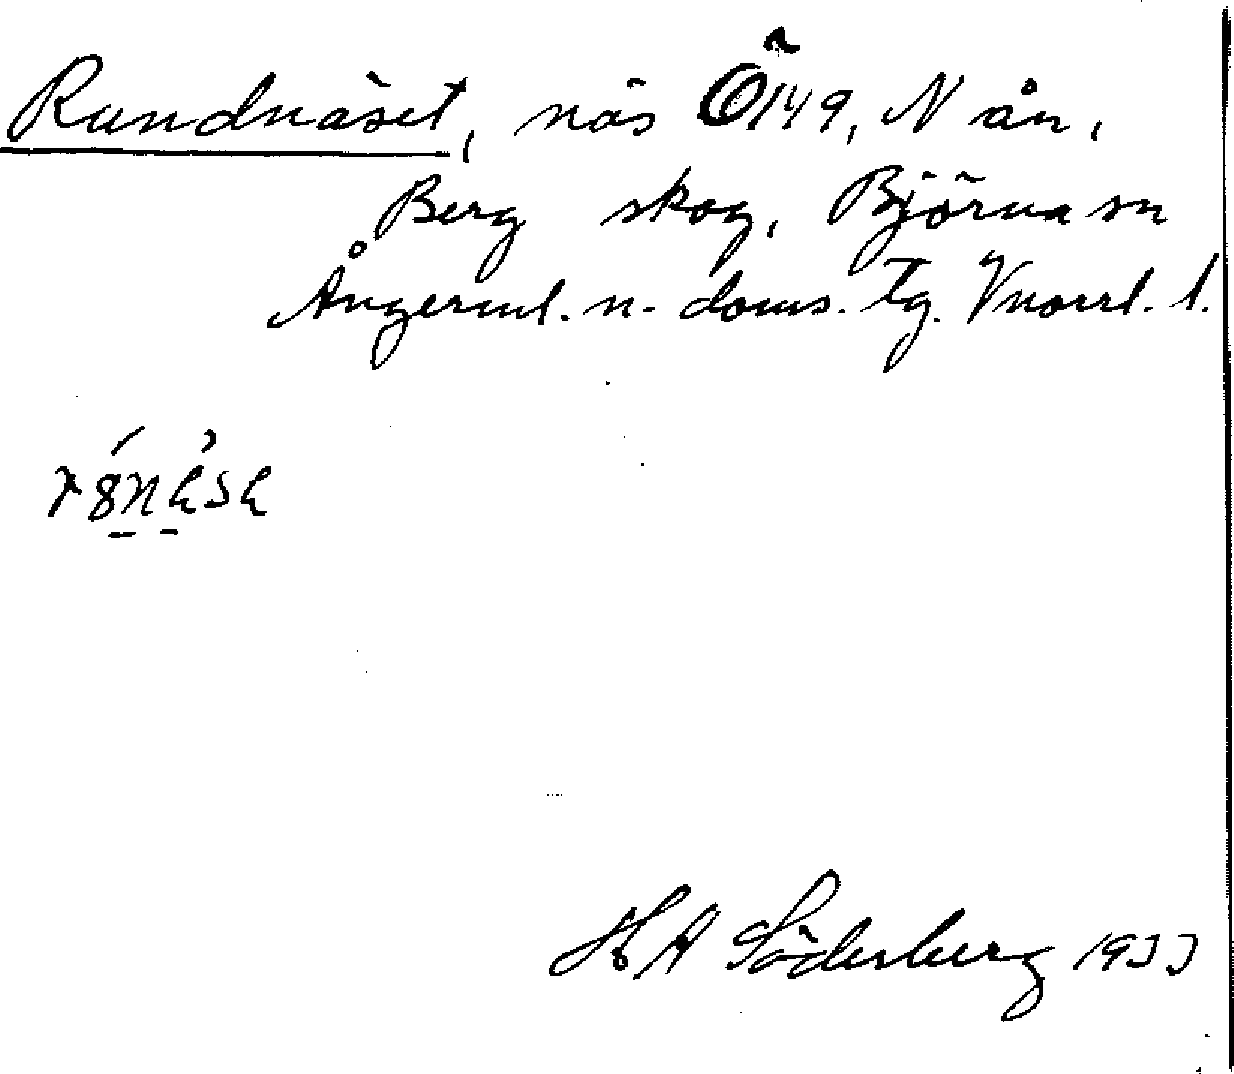 Rundnäset, näs Ö 149, N ån,
Berg skog, Björna sn
Ångerml. n. doms. tg. Vnorrl. l.
H A Söderberg 1933